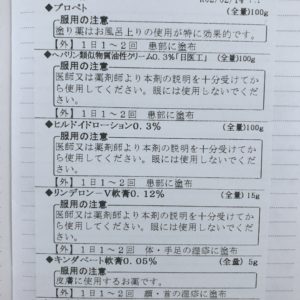 ◆プロペト (全量)100g
服用の注意
塗り薬はお風呂上りの使用が特に効果的です。
【外】１日１～２回 患部に塗布
◆ヘパリン類似物質油性クリーム0.3%「日医工」 (全量)100g
服用の注意
医師又は薬剤師より本剤の説明を十分受けてか
ら使用してください。眼には使用しないでくだ
さい。
【外】１日１～２回 患部に塗布
◆ヒルドイドローション0.3% (全量)100g
服用の注意
医師又は薬剤師より本剤の説明を十分受けてか
ら使用してください。眼には使用しないでくだ
さい。
【外】１日１～２回 患部に塗布
◆リンデロン－Ｖ軟膏0.12% (全量) 15g
服用の注意
医師又は薬剤師より本剤の説明を十分受けてか
ら使用してください。眼には使用しないでくだ
さい。
【外】１日１～２回 体・手足の湿疹に塗布
◆キンダベート軟膏0.05% (全量) 5g
服用の注意
皮膚に使用するお薬です。
【外】１日１～２回 顔・首の湿疹に塗布